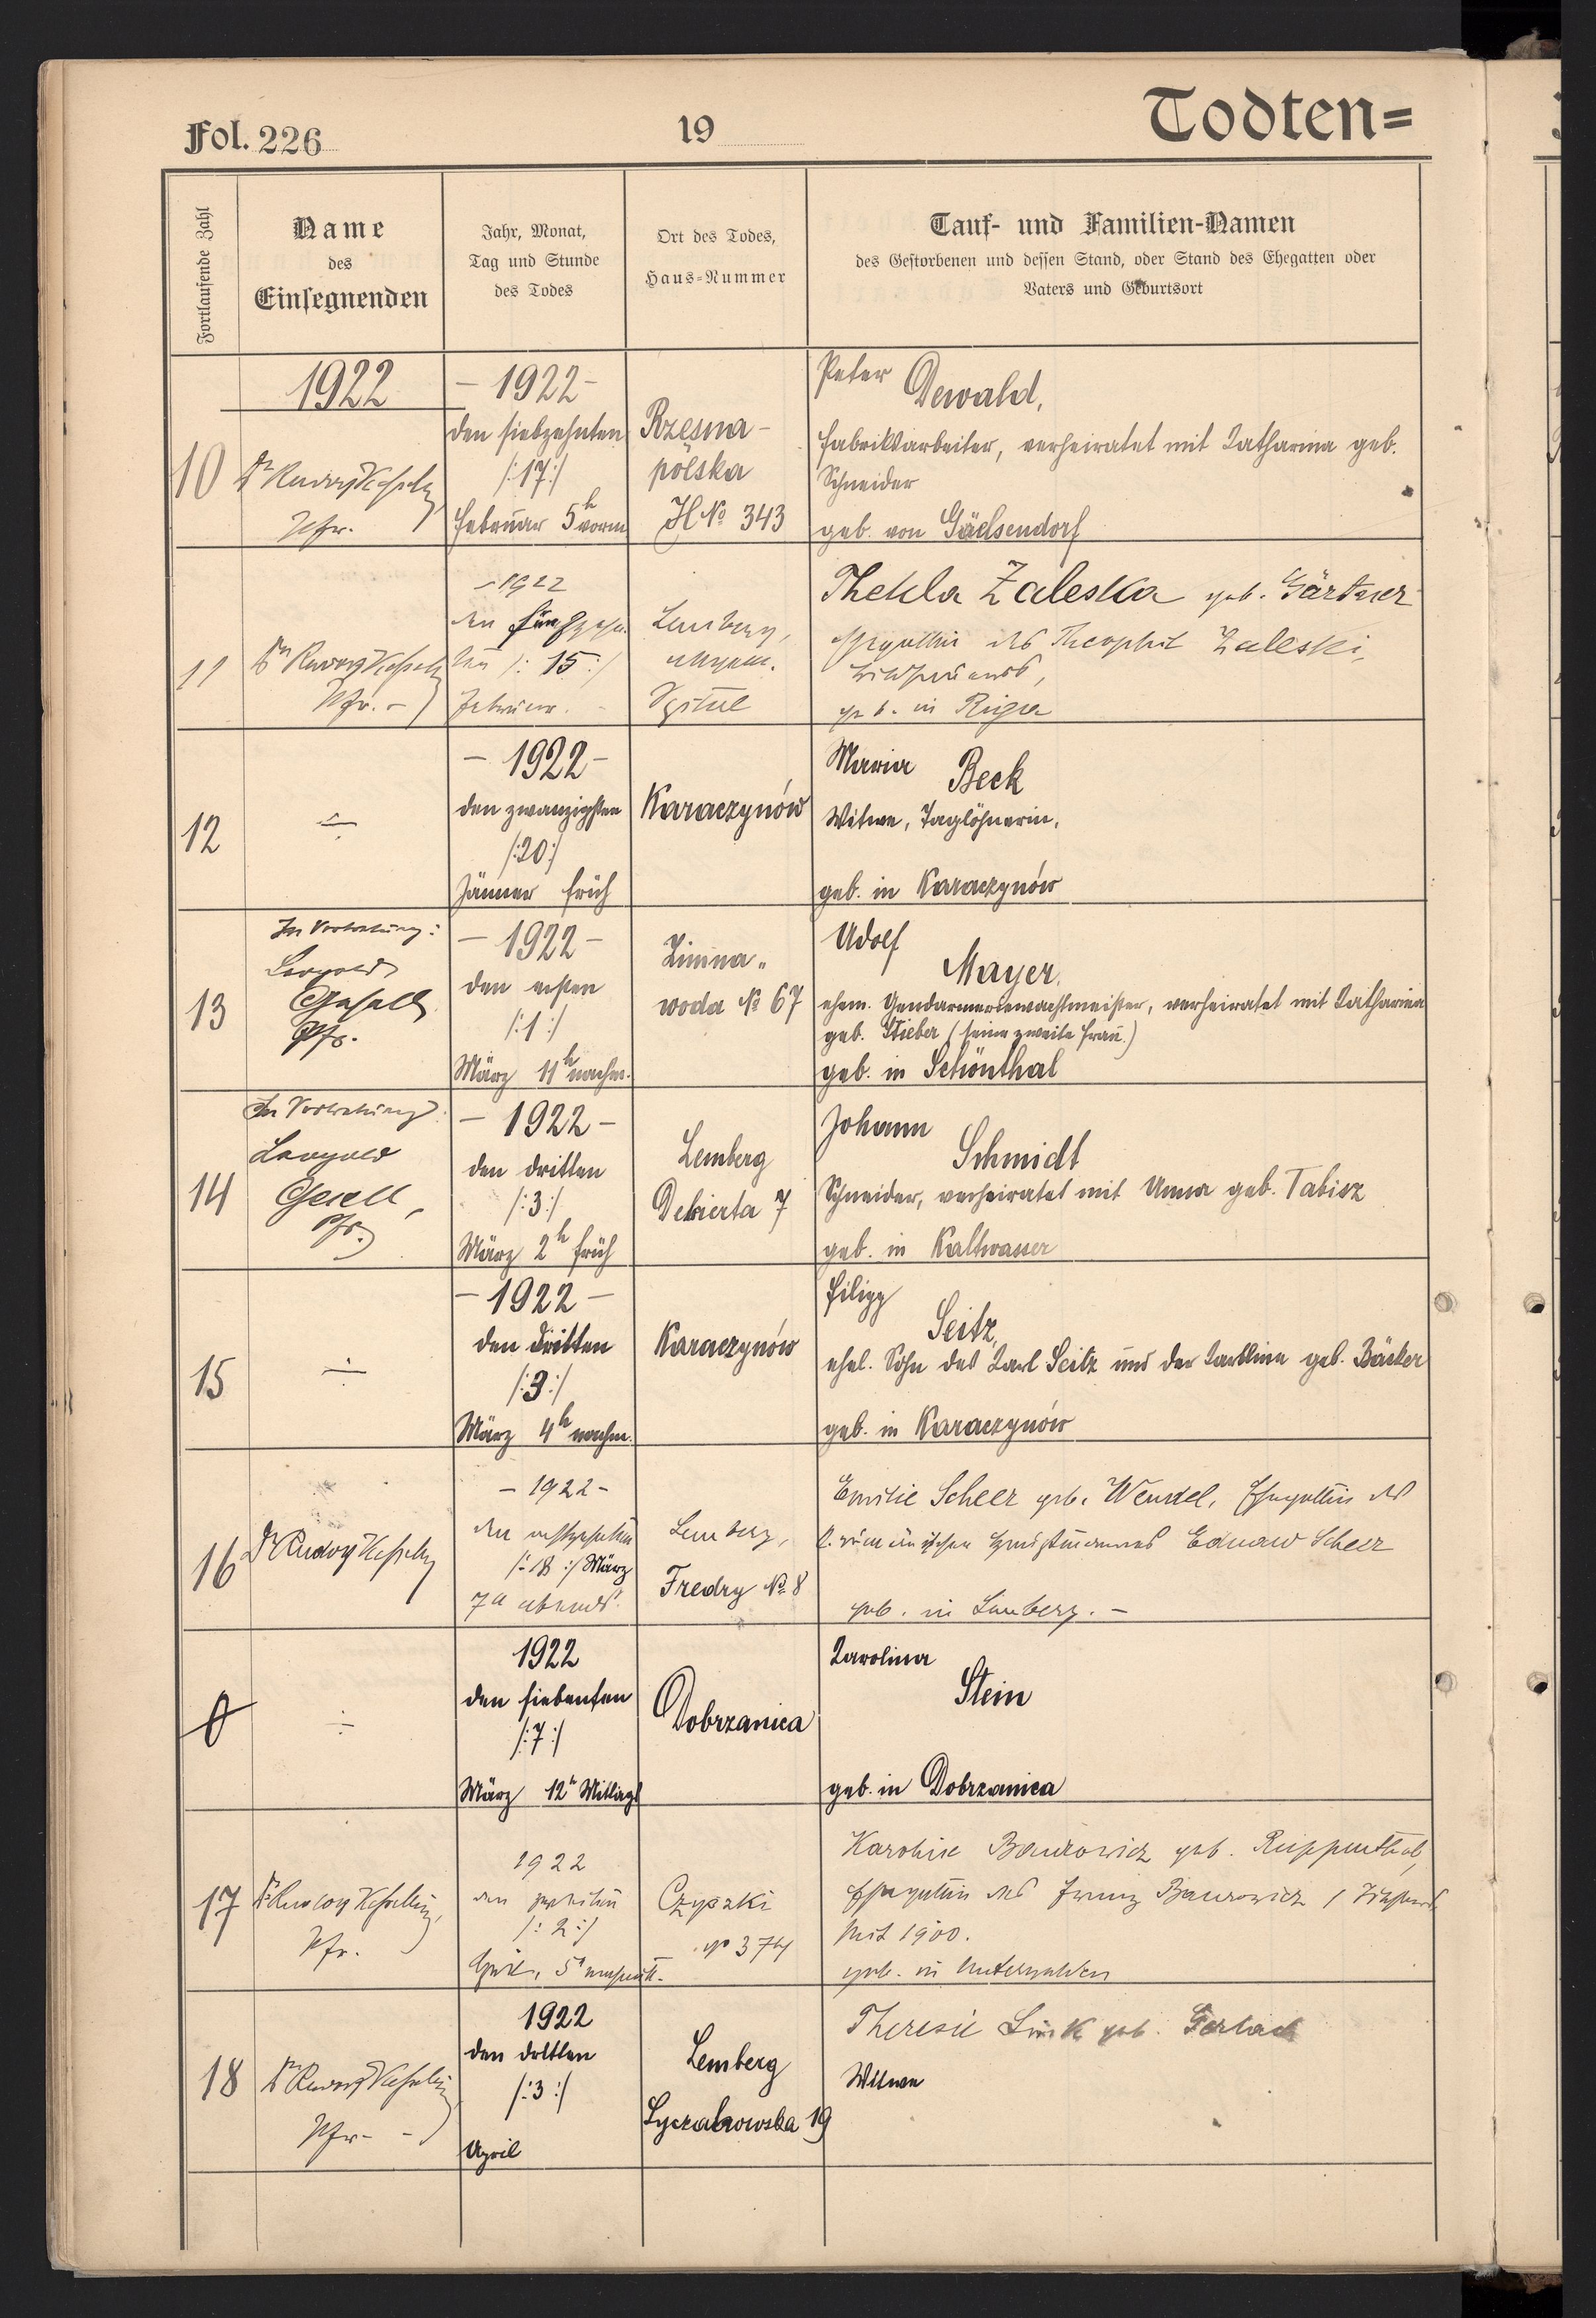 Fol. 226
19
Todten=
Fortlaufende Zahl
Name
des
Einsegnenden
Jahr, Monat,
Tag und Stunde
des Todes
Ort des Todes,
Haus-Nummer
Tauf- und Familien-Namen
des Gestorbenen und dessen Stand, oder Stand des Ehegatten oder
Vaters und Geburtsort
10
1922
Dr Rudolf Kesselring
Pfr.
- 1922 -
den siebzehnten
/:17:/
Februar 5h vorm
Rzęsna-
polska
H No 343
Peter Dewald,
Fabriksarbeiter, verheiratet mit Katharina geb.
Schneider
geb. von
11
Dr Rudolf Kesselring
Pfr. -
- 1922
den fünfzehn-
ten /: 15 :/
Februar. -
Lemberg,
allgem.
Spital
Thekla Zaleska geb. Gärtner
Ehegattin des Theophil Zaleski,
geb. in Riga
12
÷
- 1922 -
den zwanzigsten
/:20:/
Jänner früh
Karaczynów
Maria Beck
Witwe, Taglöhnerin,
geb. in Karaczynów
13
In Vertretung:
Leopold
Gesell
Pfr.
- 1922 -
den ersten
/:1:/
März 11h nachm.
Zimna-
woda No 67
Adolf
Mayer,
ehem. Gendarmeriewachtmeister, verheiratet mit Katharina
geb. Stieber (seine zweite Frau.)
geb. in Schönthal
14
In Vertretung:
Leopold
Gesell,
Pfr.
- 1922 -
den dritten
/:3:/
März 2h früh
Lemberg
Dekierta 7
Johann
Schmidt
Schneider, verheiratet mit Anna geb. Tabisz
geb. in Kaltwasser
15
÷
- 1922 -
den dritten
/:3:/
März 4h nachm.
Karaczynów
Filipp
Seitz,
ehel. Sohn des Karl Seitz und der Karoline geb. Bäcker
geb. in Karaczynów
16
Dr Rudolf Kesselring
- 1922 -
den achtzehnten
/: 18 :/ März
7h abends.
Lemberg,
Fredry No 8
Emilie Scheer geb. Wendel, Ehegattin des
Eduard Scheer
geb. in Lemberg. -
0
÷
1922
den siebenten
/:7:/
März 12h Mittags
Dobrzanica
Karolina
Stein
geb. in Dobrzanica
17
Dr Rudolf Kesselring,
Pfr.
1922
den zweiten
/: 2 :/
April, 5h nachmitt.
Czyszki
No 374
Karoline Baurowicz geb. Ruppenthal,
Ehegattin des Franz Baurowicz
seit 1900.
geb. in Unterwalden
18
Dr Rudolf Kesselring
Pfr. -
1922
den dritten
/:3:/
April
Lemberg
Łyczakowska 19
Theresie Link geb. Gerlach
Witwe